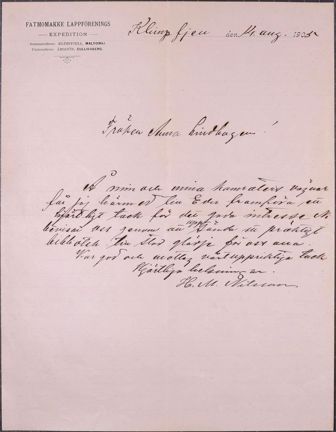 FATMOMAKKE LAPPFÖRENINGS
EXPEDITION
Klimpfjeu den 14 aug. 1905
Fröken Anna Lindhagen!
Å min och mina kamraters vägnar
får jag härmed till Eder framföra ett
hjärtligt tack för det goda intresse Ni
oss genom att sända så präktigt
bibliotek till stor glädje för oss
Var god och mottag vårt uppriktiga tack
Hjärtliga helsningar.
H. M. Nilsson